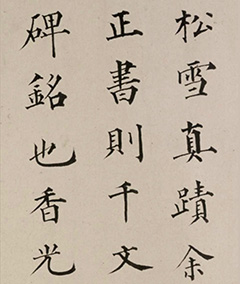 松雪真蹟余
正書則千文
碑銘也香光